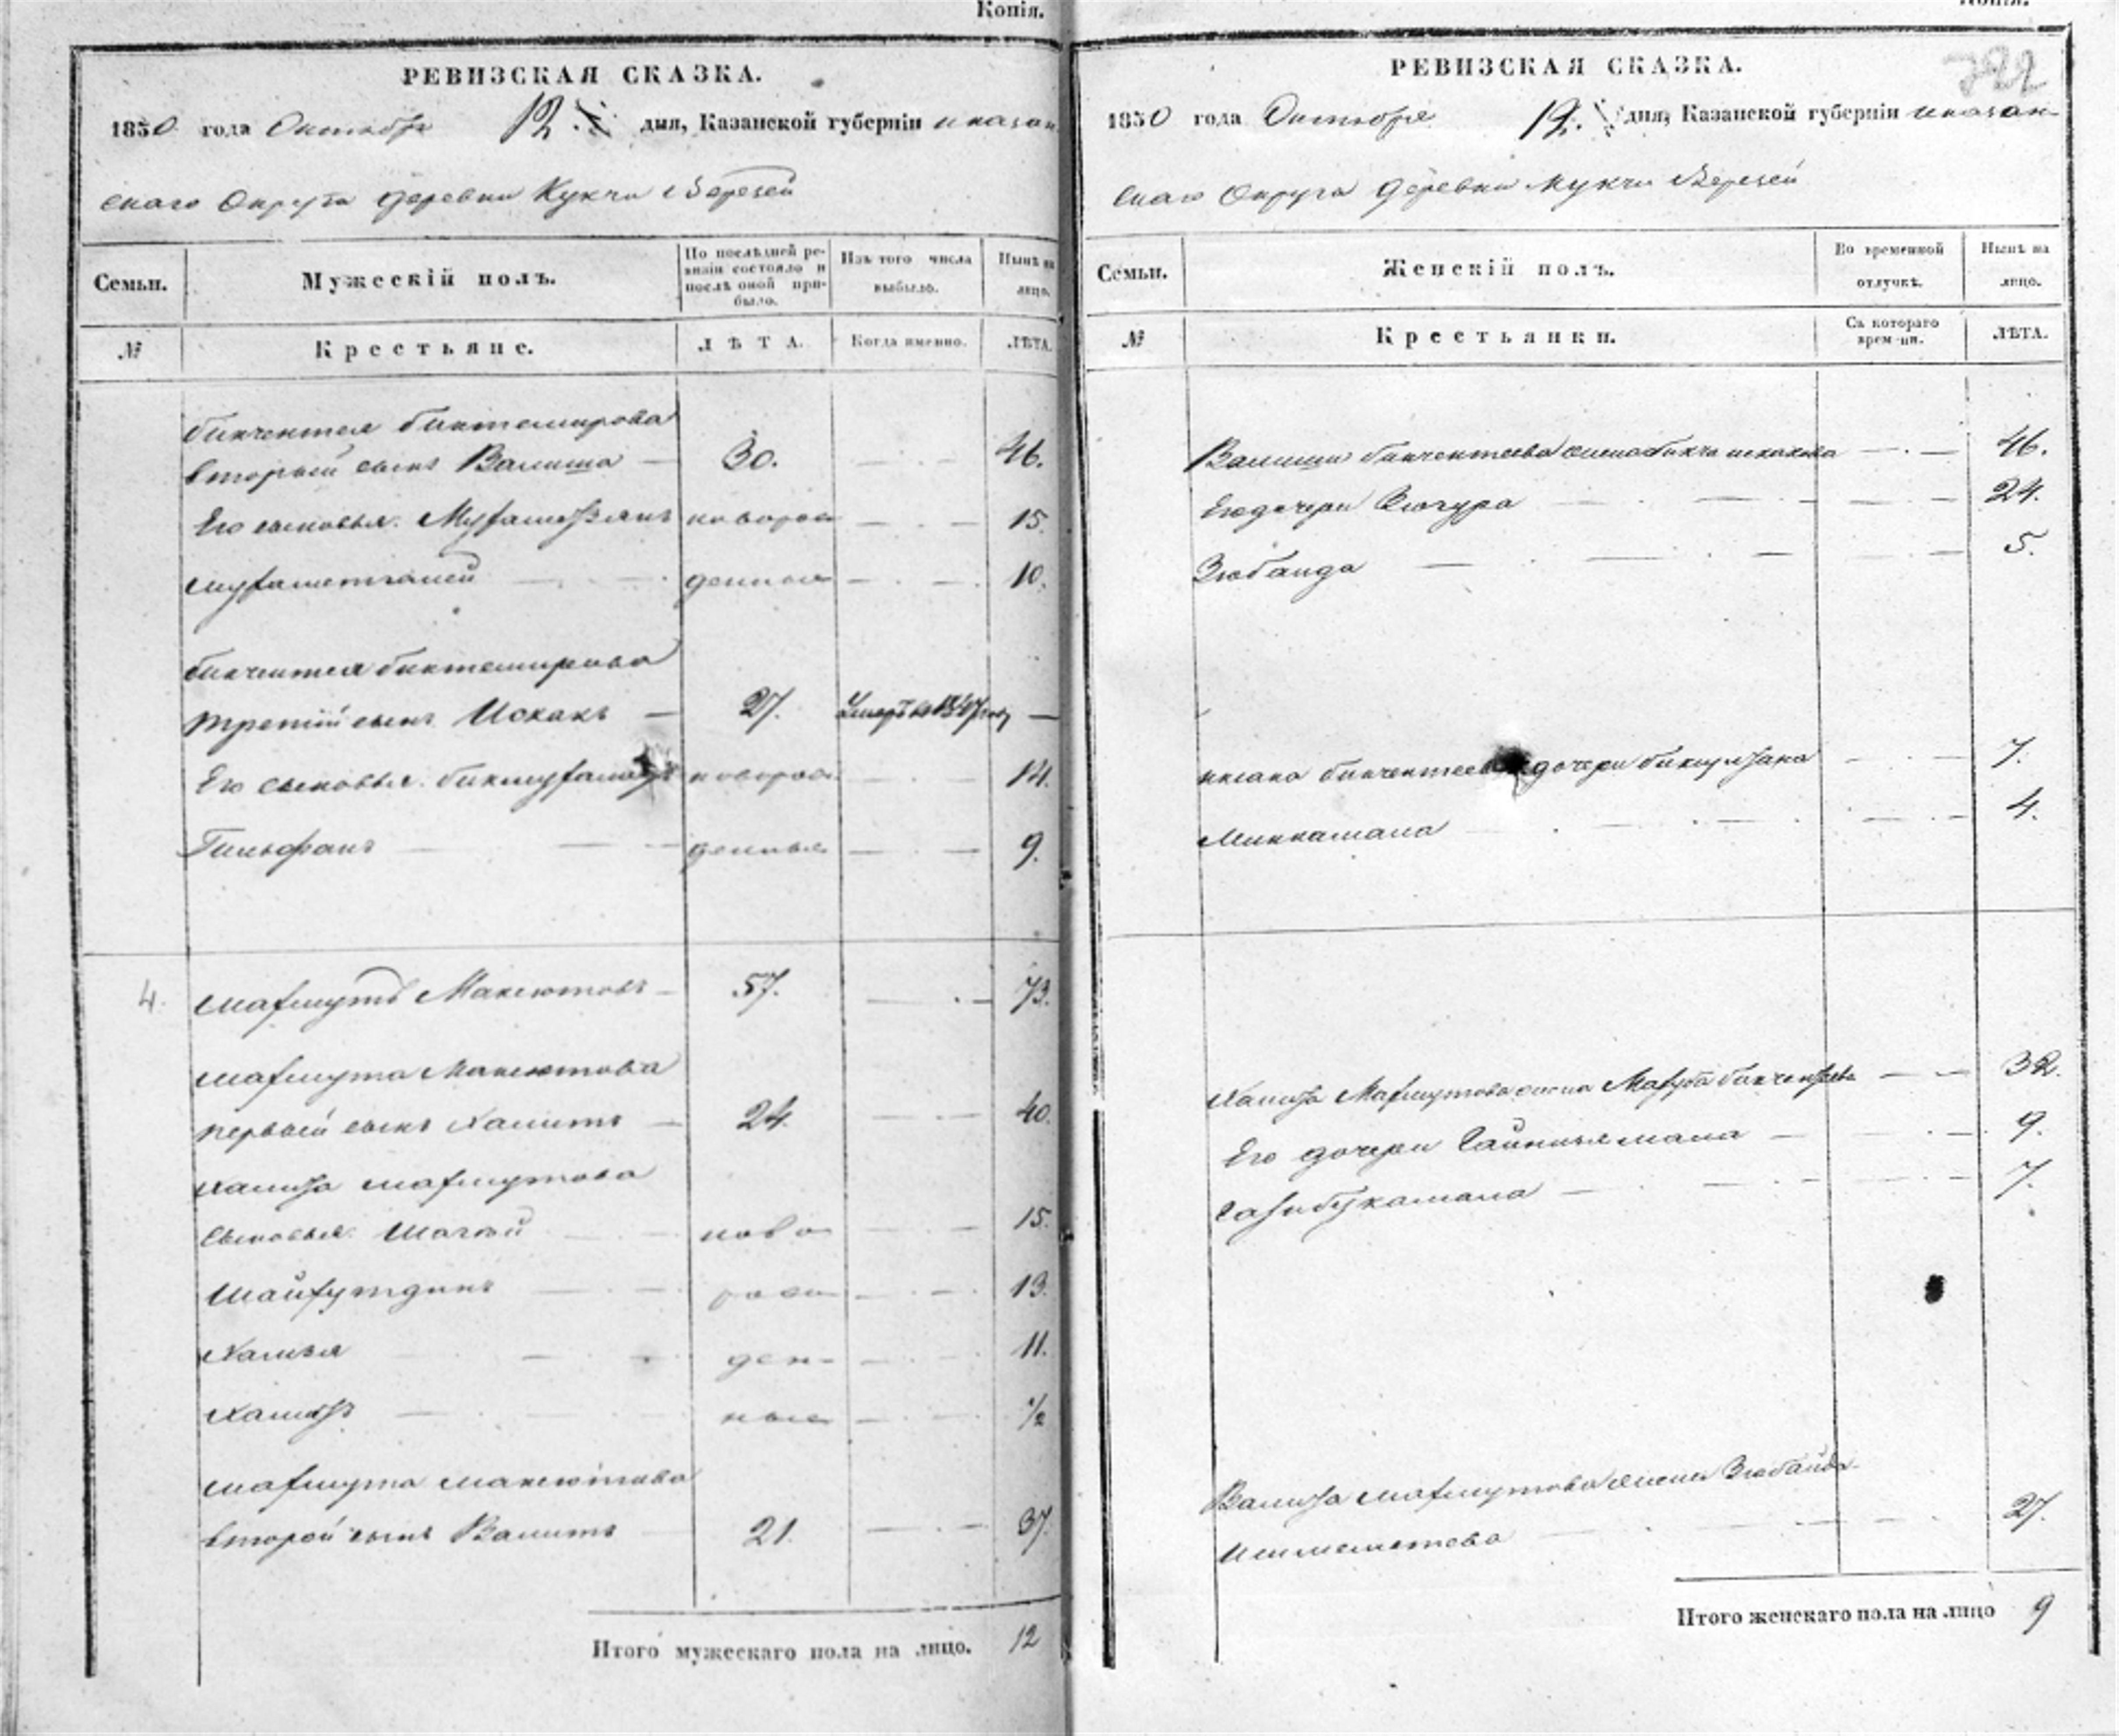 Копія.
РЕВИЗСКАЯ СКАЗКА.
1850 года Октября 12 дня, Казанской губерніи и казан
скаго Округа деревни Кукчи Верезей
Семьи. Мужескій полъ. По послѣдней ревизіи состояло и послѣ оной прибыло. Изъ того числа выбыло. Нынѣ на лицо.
№ Крестьяне. ЛѢТА. Когда именно. ЛѢТА.
бикчентея биктемирова
вторый сынъ Валиша — 30. 46.
Его сыновья. Мухаметзянъ новорож 15.
мухаметгалей денные 10.
бикчентея биктемирова
третій сынъ Искакъ — 27. Умеръ въ 1847 году —
Его сыновья. новорож 14.
Гильфанъ денные 9.
4. махмутъ Максютовъ 57. 73.
махмута Максютова
первый сынъ Хамитъ — 24. 40.
Хамида махмутова
сыновья. Шагей ново 15.
Шайхутдинъ рож 13.
Хамзя ден- 11.
ные ½
махмута максютова
второй сынъ Валитъ 21. 37.
Итого мужескаго пола на лицо. 12
Копія.
РЕВИЗСКАЯ СКАЗКА. 722
1850 года Октября 12. дня, Казанской губерніи и казан-
скаго Округа деревни Кукчи Верезей
Семьи. Женскій полъ. Во временной отлучкѣ. Нынѣ на лицо.
№ Крестьянки. Съ котораго времени. ЛѢТА.
Валиши бикчентеева жена 46.
Его дочери 24.
Зюбаида 5.
бикчентеева дочери 7.
Минкамала 4.
Хамида Махмутова жена Махуба 32.
Его дочери Гайниямала 9.
7.
Валида махмутова жена Зюбайда
Ишмаметева 27.
Итого женскаго пола на лицо 9